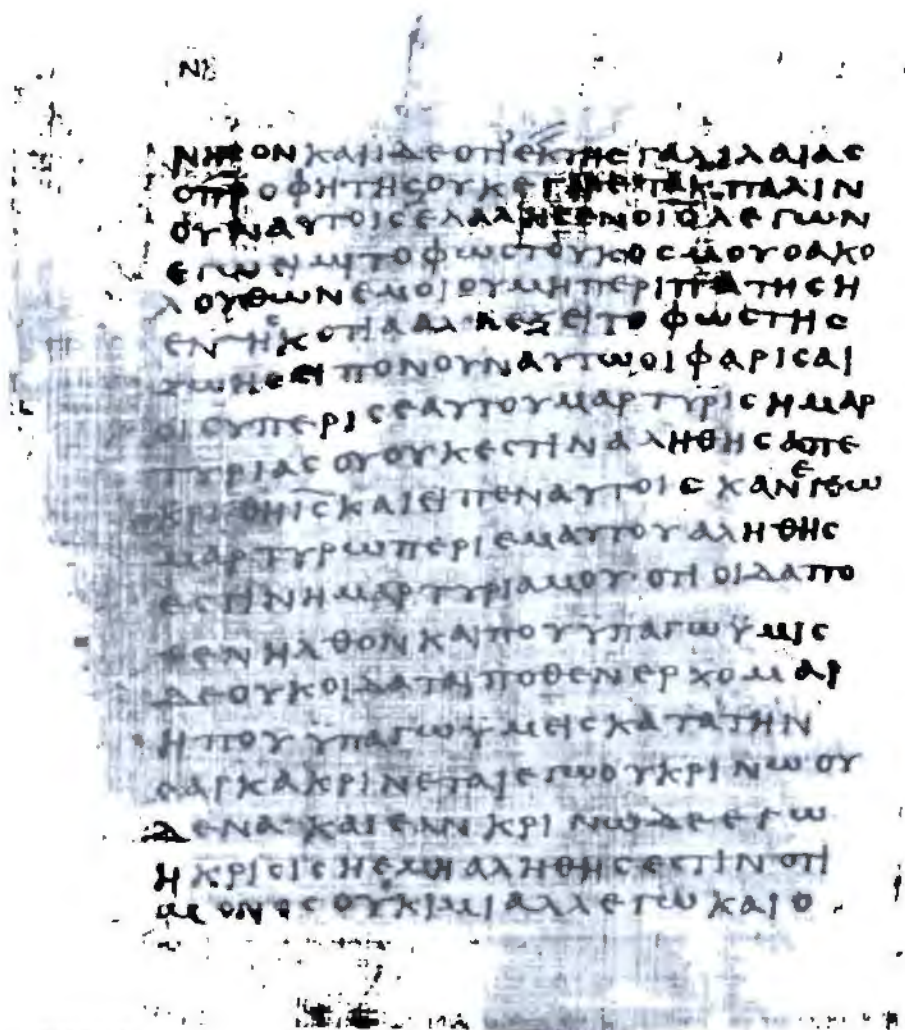 ΝΒ
ΝΗϹΟΝΚΑΙΙΔΕΟΤΙΕΚΤΗϹΓΑΛΙΛΑΙΑϹ
ΟΠΡΟΦΗΤΗϹΟΥΚΕΓΕΙΡΕΤΑΙΠΑΛΙΝ
ΟΥΝΑΥΤΟΙϹΕΛΑΛΗϹΕΝΟΙϹΛΕΓΩΝ
ΕΓΩΕΙΜΙΤΟΦΩϹΤΟΥΚΟϹΜΟΥΟΑΚΟ
ΛΟΥΘΩΝΕΜΟΙΟΥΜΗΠΕΡΙΠΑΤΗϹΗ
ΕΝΤΗϹΚΟΤΙΑΑΛΛΕΞΕΙΤΟΦΩϹΤΗϹ
ΖΩΗϹΕΙΠΟΝΟΥΝΑΥΤΩΟΙΦΑΡΙϹΑΙ
ΟΙϹΥΠΕΡΙϹΕΑΥΤΟΥΜΑΡΤΥΡΙϹΗΜΑΡ
ΤΥΡΙΑϹΟΥΟΥΚΕϹΤΙΝΑΛΗΘΗϹΑΠΕ
ΚΡΙΘΗΙϹΚΑΙΕΙΠΕΝΑΥΤΟΙϹΚΑΝΕΓΩ
ΜΑΡΤΥΡΩΠΕΡΙΕΜΑΥΤΟΥΑΛΗΘΗϹ
ΕϹΤΙΝΗΜΑΡΤΥΡΙΑΜΟΥ·ΟΤΙΟΙΔΑΠΟ
ΘΕΝΗΛΘΟΝΚΑΙΠΟΥΫΠΑΓΩΫΜΙϹ
ΔΕΟΥΚΟΙΔΑΤΑΙΠΟΘΕΝΕΡΧΟΜΑΙ
ΗΠΟΥΫΠΑΓΩΫΜΕΙϹΚΑΤΑΤΗΝ
ϹΑΡΚΑΚΡΙΝΕΤΑΙΕΓΩΟΥΚΡΙΝΩΟΥ
ΔΕΝΑ·ΚΑΙΕΑΝΚΡΙΝΩΔΕΕΓΩ
ΗΚΡΙϹΙϹΗΕΜΗΑΛΗΘΗϹΕϹΤΙΝΟΤΙ
ΜΟΝΟϹΟΥΚΙΜΙΑΛΛΕΓΩΚΑΙΟ